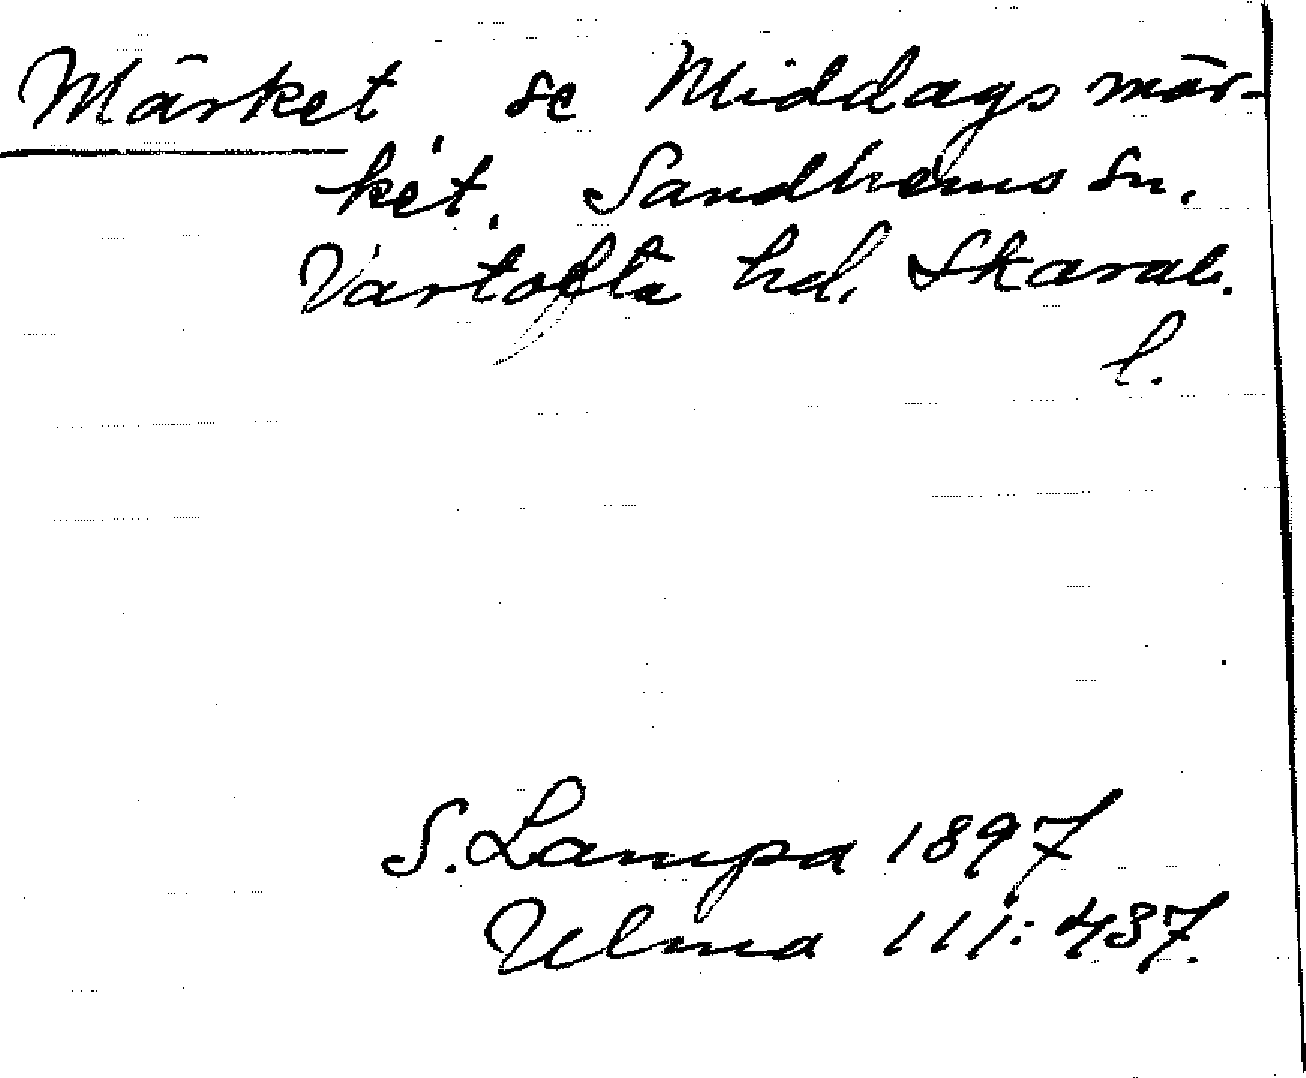 Märket, se Middagsmär-
ket. Sandhems sn.
Vartofta hd. Skarab.
l.
S. Lampa 1897
Ulma 111:437.